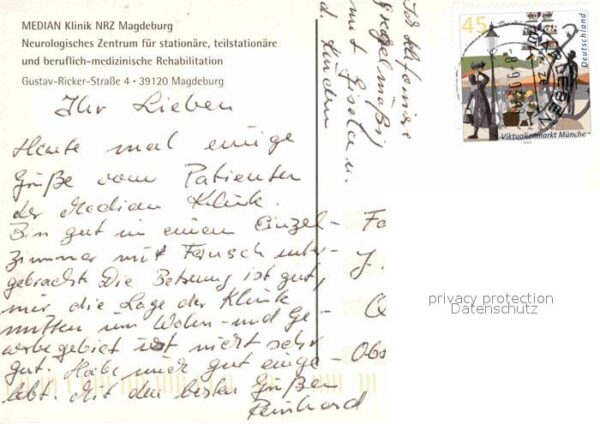 MEDIAN Klinik NRZ Magdeburg
Neurologisches Zentrum für stationäre, teilstationäre
und beruflich-medizinische Rehabilitation
Gustav-Ricker-Straße 4 • 39120 Magdeburg
Ihr Lieben
Heute mal einige
Grüße vom Patienten
der Median Klinik.
Bin gut in einem Einzel-
zimmer mit Fernseh unter-
gebracht. Die Betreuung ist gut,
nur die Lage der Klinik
mitten im Wohn- und Ge-
werbegebiet ist nicht sehr
gut. Habe mich gut einge-
lebt. Mit den besten Grüßen
Reinhard
Ich telefoniere
regelmäßig
mit Gisela u.
d. Kindern
45
Deutschland
Viktualienmarkt München
Fa
J.
Obs
privacy protection
Datenschutz